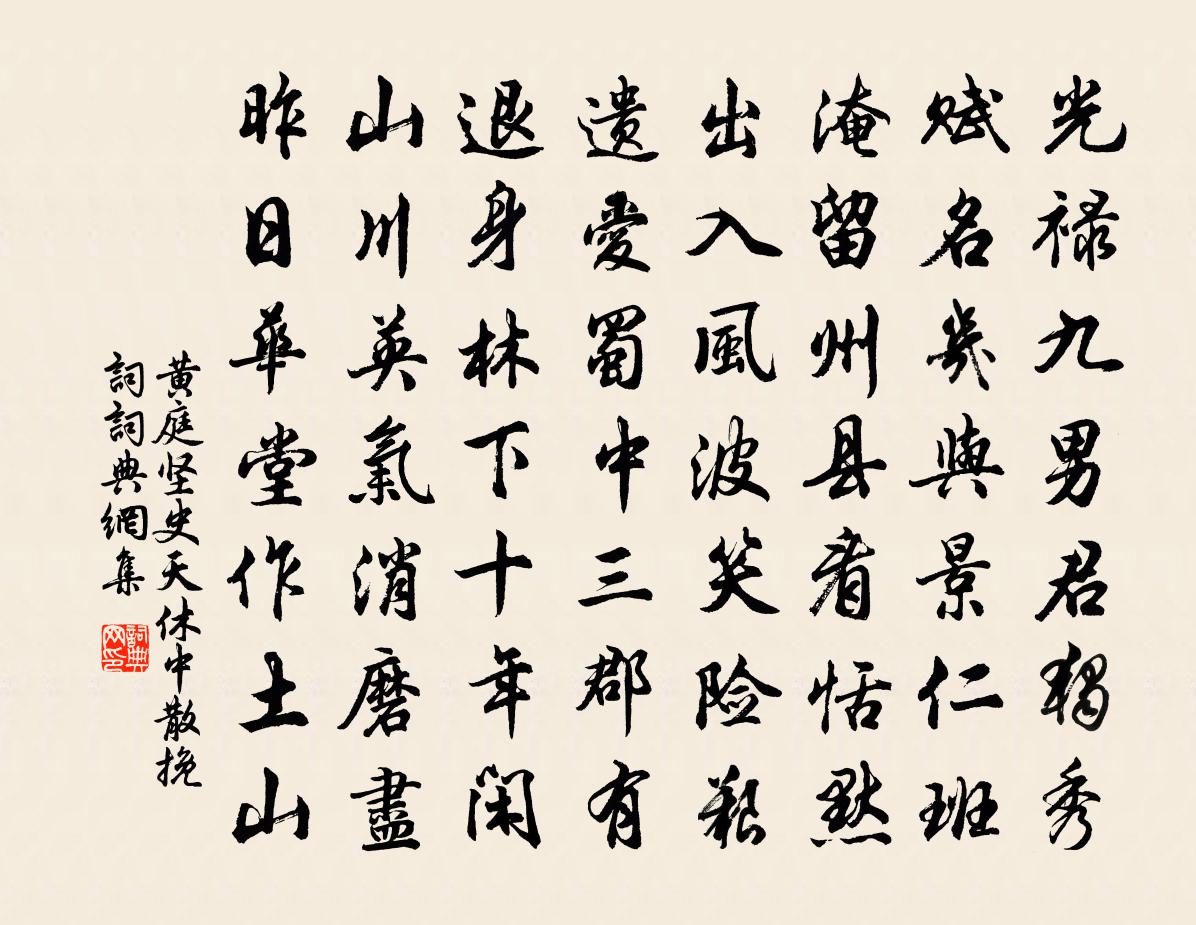 光禄九男君独秀
赋名几與景仁班
淹留州县看恬默
出入風波笑险艱
遗愛蜀中三郡有
退身林下十年闲
山川英氣消磨盡
昨日華堂作土山
黄庭坚史天休中散挽
詞詞典網集
詞典
网印